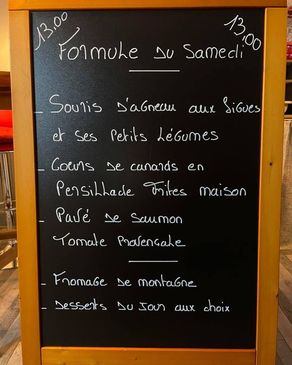 13.00
13.00
Formule Du Samedi
- Souris D'agneau aux Figues
et ses Petits Légumes
- Coeurs De canards en
Persillade Frites maison
- Pavé De Saumon
Tomate Provençale
- Fromage De montagne
- Desserts Du Jour aux choix